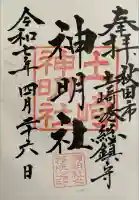 奉拝 秋田市
土崎湊総鎮守
神明社
土崎神明社
令和七年四月二十六日